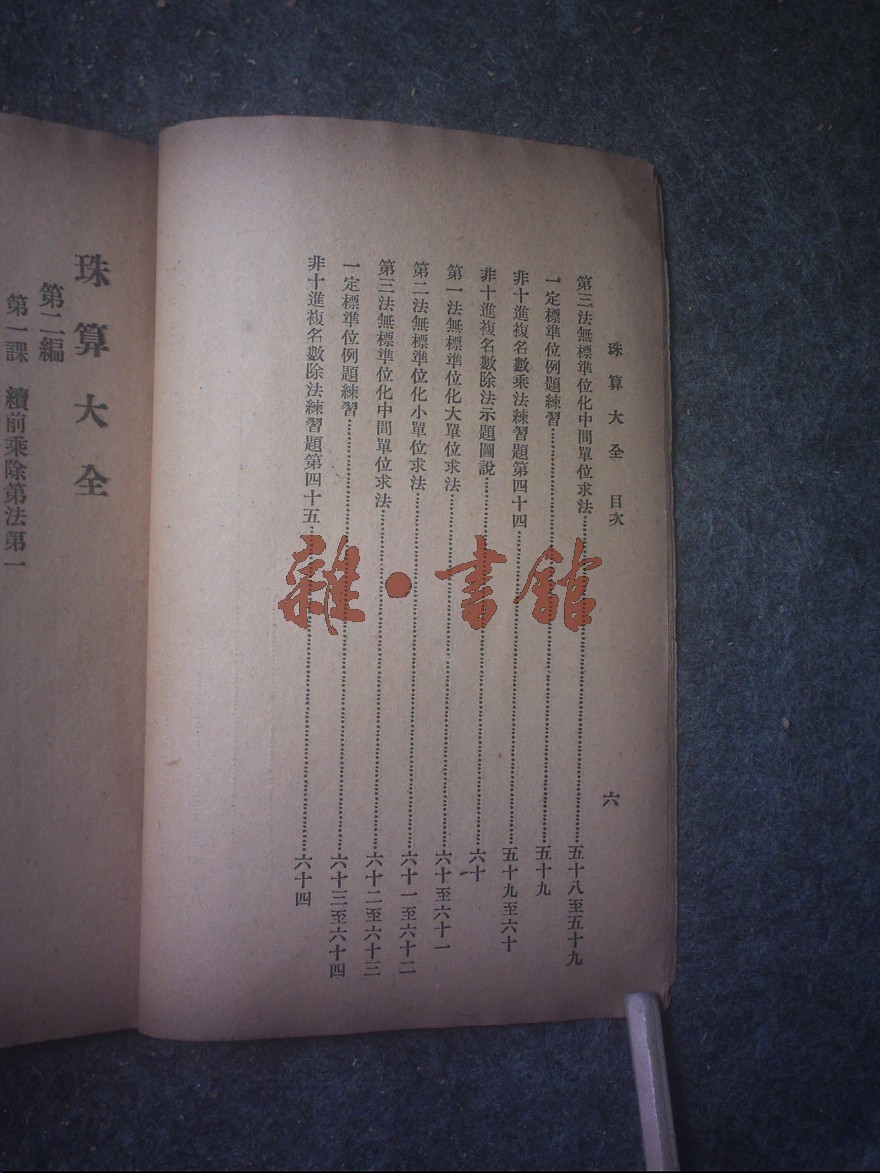 珠算大全 目次 六
第三法無標準位化中間單位求法……五十八至五十九
一定標準位例題練習……五十九
非十進複名數乘法練習題第四十四……五十九至六十
非十進複名數除法示題圖說……六十
第一法無標準位化大單位求法……六十至六十一
第二法無標準位化小單位求法……六十一至六十二
第三法無標準位化中間單位求法……六十二至六十三
一定標準位例題練習……六十三至六十四
非十進複名數除法練習題第四十五……六十四
珠算大全
第二編
第一課 續前乘除第法第一
雜·書館